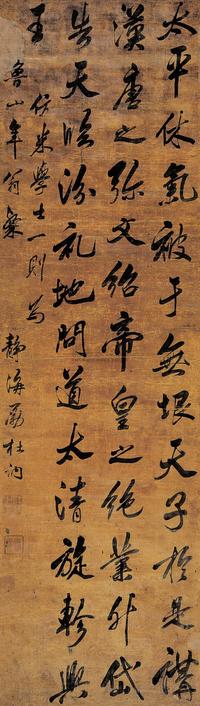 太平休氣被于無垠天子於是講
漢唐之弥文紹帝皇之絕業升岱
告天臨汾礼地問道太清旋軫興
王
仿米學士一則為
魯山年翁粲
静海勵杜訥